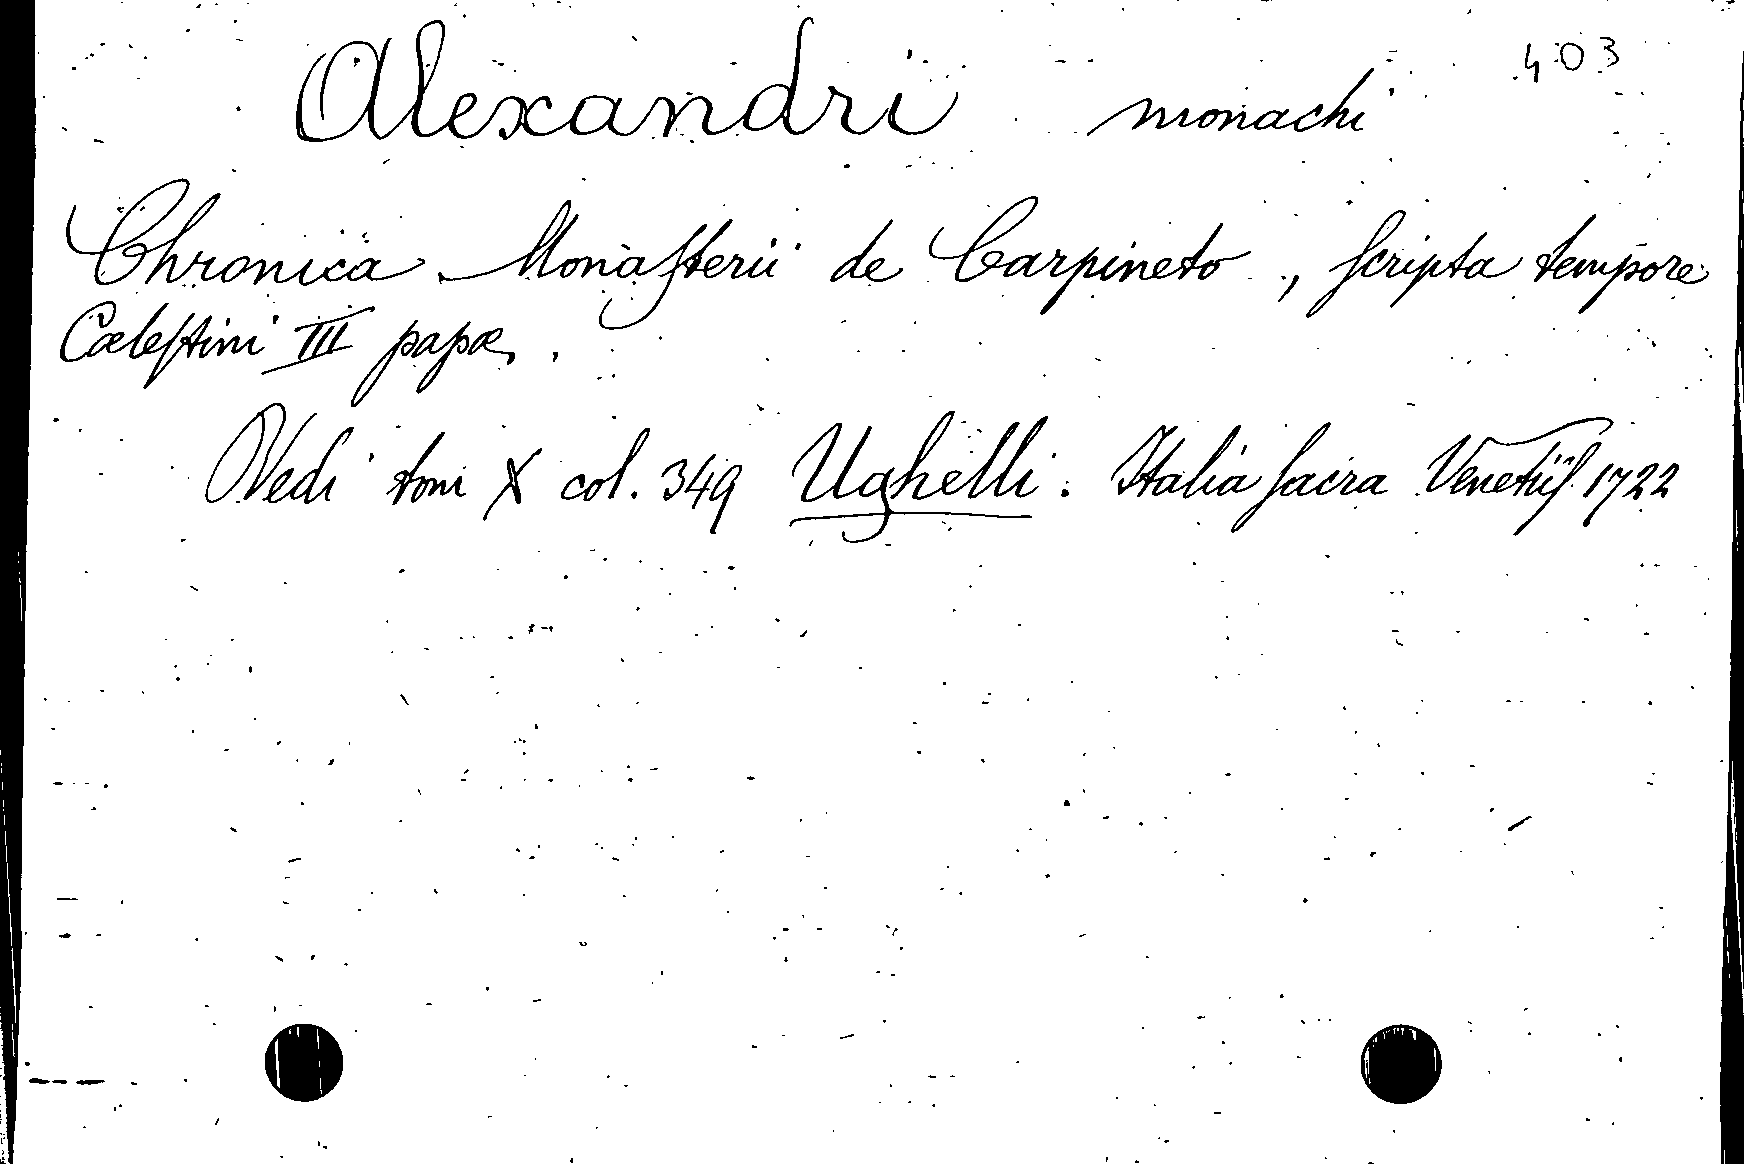 403
Alexandri monachi
Chronica Monasterii de Carpineto, scripta tempore
Cælestini III papæ.
Vedi tom X col. 349 Ughelli. Italia sacra Venetiis 1722